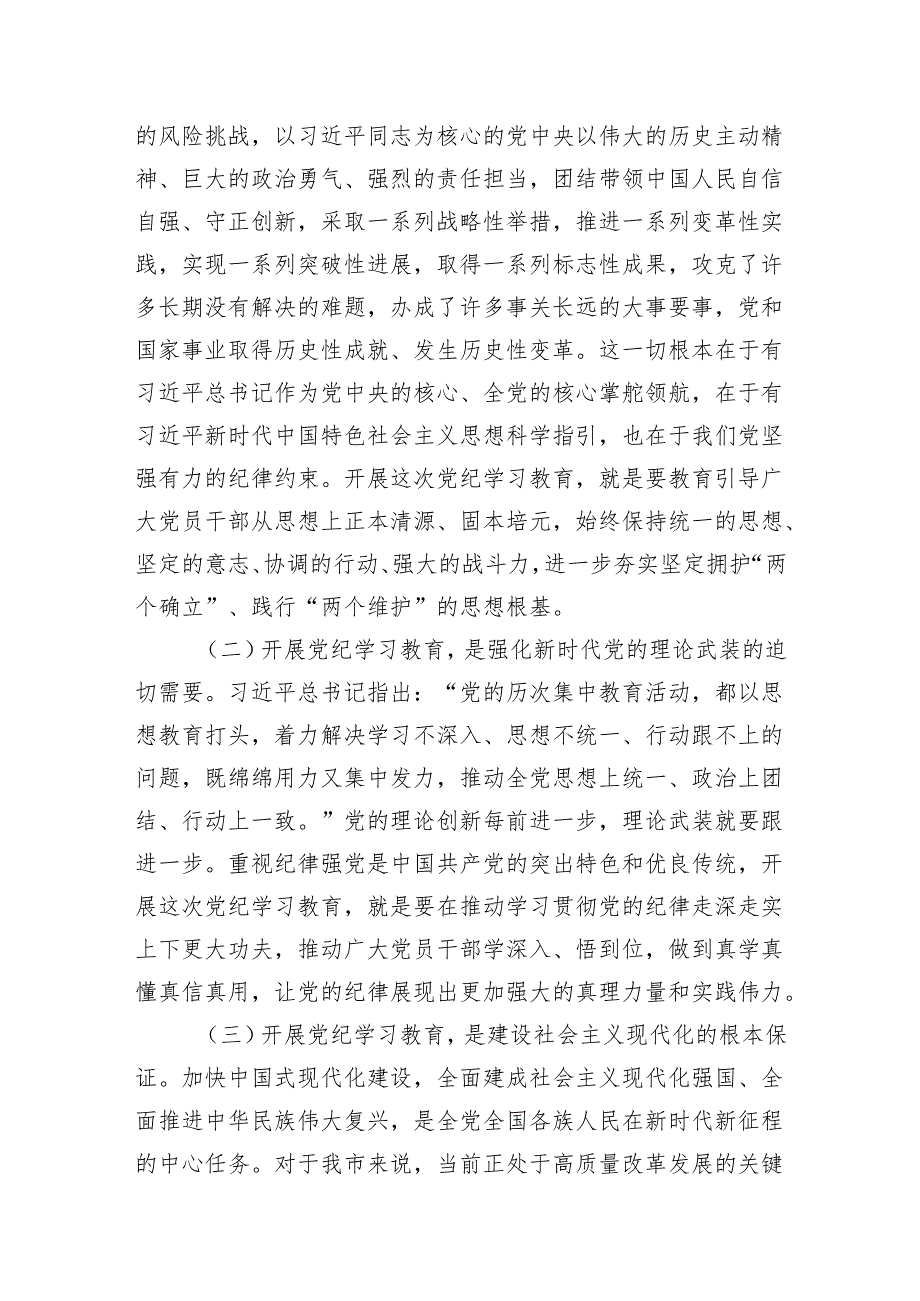 的风险挑战，以习近平同志为核心的党中央以伟大的历史主动精
神、巨大的政治勇气、强烈的责任担当，团结带领中国人民自信
自强、守正创新，采取一系列战略性举措，推进一系列变革性实
践，实现一系列突破性进展，取得一系列标志性成果，攻克了许
多长期没有解决的难题，办成了许多事关长远的大事要事，党和
国家事业取得历史性成就、发生历史性变革。这一切根本在于有
习近平总书记作为党中央的核心、全党的核心掌舵领航，在于有
习近平新时代中国特色社会主义思想科学指引，也在于我们党坚
强有力的纪律约束。开展这次党纪学习教育，就是要教育引导广
大党员干部从思想上正本清源、固本培元，始终保持统一的思想、
坚定的意志、协调的行动、强大的战斗力，进一步夯实坚定拥护“两
个确立”、践行“两个维护”的思想根基。
（二）开展党纪学习教育，是强化新时代党的理论武装的迫
切需要。习近平总书记指出：“党的历次集中教育活动，都以思
想教育打头，着力解决学习不深入、思想不统一、行动跟不上的
问题，既绵绵用力又集中发力，推动全党思想上统一、政治上团
结、行动上一致。”党的理论创新每前进一步，理论武装就要跟
进一步。重视纪律强党是中国共产党的突出特色和优良传统，开
展这次党纪学习教育，就是要在推动学习贯彻党的纪律走深走实
上下更大功夫，推动广大党员干部学深入、悟到位，做到真学真
懂真信真用，让党的纪律展现出更加强大的真理力量和实践伟力。
（三）开展党纪学习教育，是建设社会主义现代化的根本保
证。加快中国式现代化建设，全面建成社会主义现代化强国、全
面推进中华民族伟大复兴，是全党全国各族人民在新时代新征程
的中心任务。对于我市来说，当前正处于高质量改革发展的关键